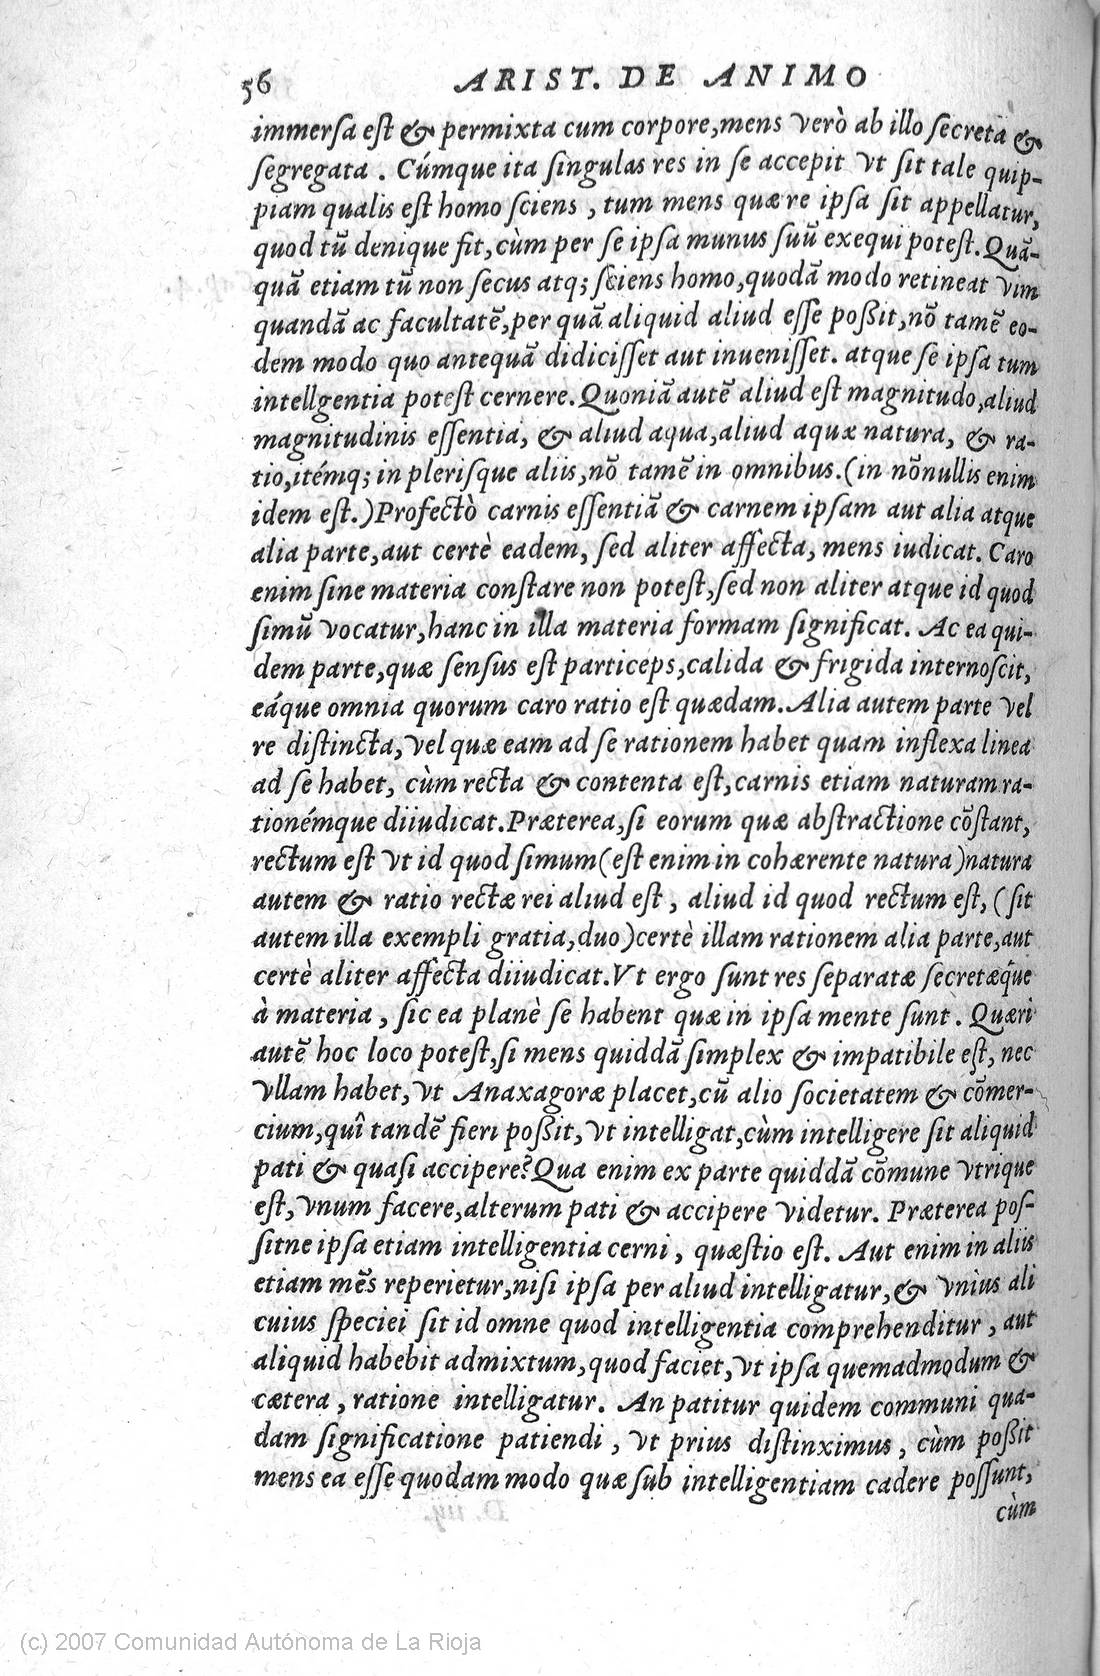 56 ARIST. DE ANIMO
immersa est & permixta cum corpore,mens verò ab illo secreta &
segregata . Cúmque ita singulas res in se accepit vt sit tale quip-
piam qualis est homo sciens , tum mens quære ipsa sit appellatur,
quod tũ denique fit,cùm per se ipsa munus suũ exequi potest.Quã-
quã etiam tũ non secus atq; sciens homo,quodã modo retineat vim
quandã ac facultatẽ,per quã aliquid aliud esse poßit,nõ tamẽ eo-
dem modo quo antequã didicisset aut inuenisset. atque se ipsa tum
intellgentia potest cernere.Quoniã autẽ aliud est magnitudo,aliud
magnitudinis essentia, & aliud aqua,aliud aquæ natura, & ra-
tio,itémq; in plerisque aliis,nõ tamẽ in omnibus.(in nõnullis enim
idem est.)Profectò carnis essentiã & carnem ipsam aut alia atque
alia parte,aut certè eadem, sed aliter affecta, mens iudicat. Caro
enim sine materia constare non potest,sed non aliter atque id quod
simũ vocatur,hanc in illa materia formam significat. Ac ea qui-
dem parte,quæ sensus est particeps,calida & frigida internoscit,
eáque omnia quorum caro ratio est quædam.Alia autem parte vel
re distincta,vel quæ eam ad se rationem habet quam inflexa linea
ad se habet, cùm recta & contenta est,carnis etiam naturam ra-
tionémque diiudicat.Præterea,si eorum quæ abstractione cõstant,
rectum est vt id quod simum(est enim in cohærente natura)natura
autem & ratio rectæ rei aliud est , aliud id quod rectum est, (sit
autem illa exempli gratia,duo)certè illam rationem alia parte,aut
certè aliter affecta diiudicat.Vt ergo sunt res separatæ secretæq́ue
à materia , sic ea planè se habent quæ in ipsa mente sunt . Quæri
autẽ hoc loco potest,si mens quiddã simplex & impatibile est, nec
vllam habet, vt Anaxagoræ placet,cũ alio societatem & cõmer-
cium,quî tandẽ fieri poßit, vt intelligat,cùm intelligere sit aliquid
pati & quasi accipere?Qua enim ex parte quiddã cõmune vtrique
est, vnum facere,alterum pati & accipere videtur. Præterea pos-
sitne ipsa etiam intelligentia cerni , quæstio est. Aut enim in aliis
etiam mẽs reperietur,nisi ipsa per aliud intelligatur,& vnius ali
cuius speciei sit id omne quod intelligentia comprehenditur , aut
aliquid habebit admixtum,quod faciet, vt ipsa quemadmodum &
cætera , ratione intelligatur. An patitur quidem communi qua-
dam significatione patiendi , vt prius distinximus , cùm poßit
mens ea esse quodam modo quæ sub intelligentiam cadere possunt,
cùm
(c) 2007 Comunidad Autónoma de La Rioja